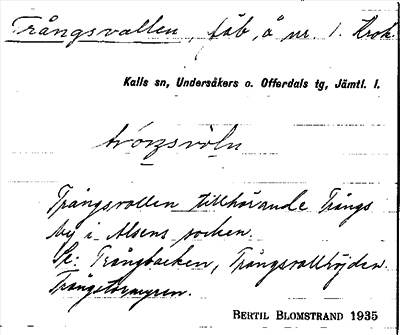 Trångsvallen, fäb, å nr. 1. Krok.
Kalls sn, Undersåkers o. Offerdals tg, Jämtl. l.
Trångsvallen tillhörande Trångs
by i Alsens socken.
Se: Trångbacken, Trångsvallhöjden.
BERTIL BLOMSTRAND 1935